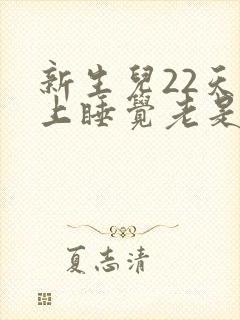 新生兒22天
上睡覺老是
夏志清